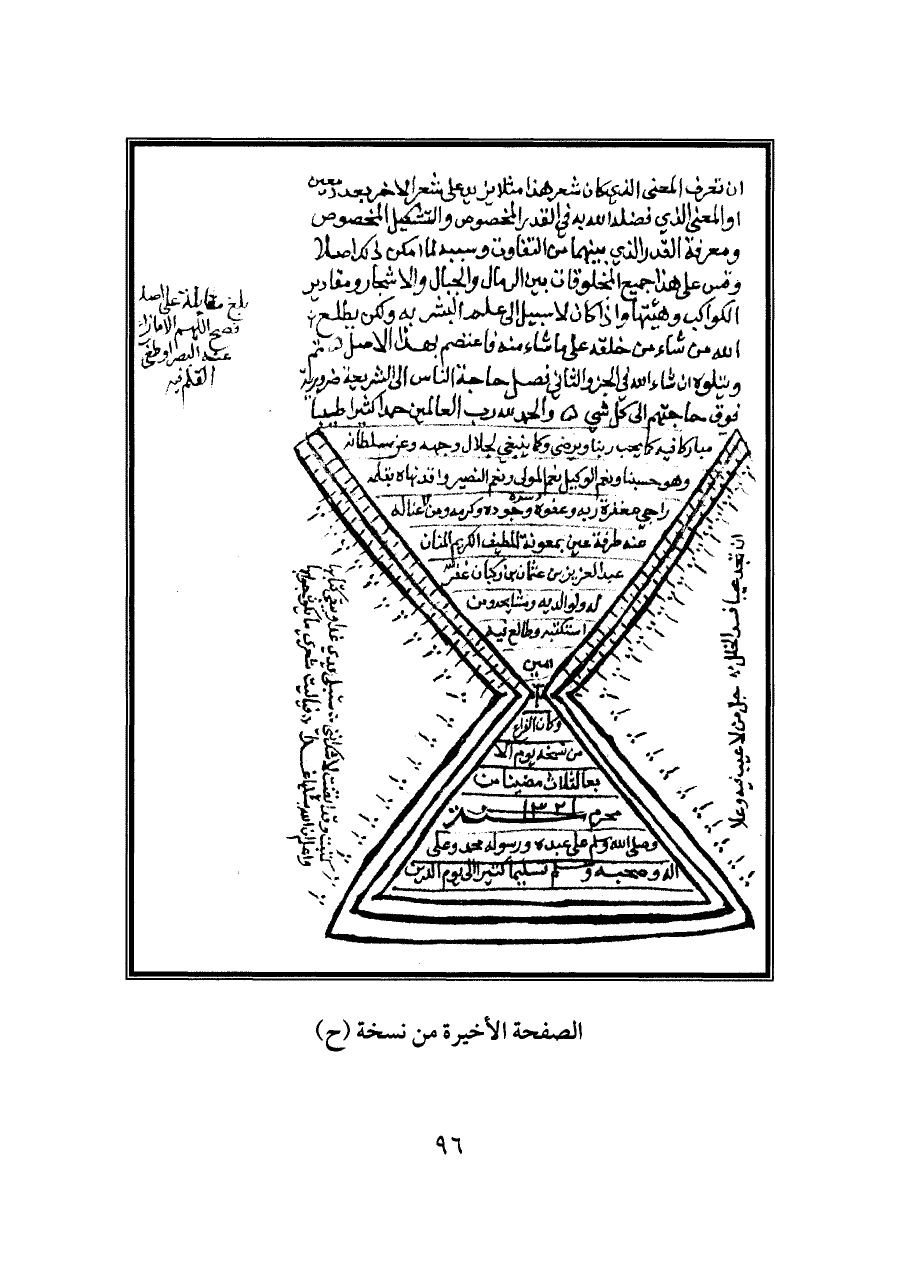 ان تعرف المعنى الذي كان شعر هذا مثلا يزيد على شعر الاخر بعدد معين
او المعنى الذي فضله الله به في القدر المخصوص والتشكيل المخصوص
ومعرفة القدر الذي بينهما من التفاوت وسببه لما امكن ذلك اصلا
وقس على هذا جميع المخلوقات من الرمال والجبال والاشجار ومقادير
الكواكب وهيئتها واذا كان لا سبيل الى علم البشر به ولكن يطلع
الله من شاء من خلقه على ما شاء منه فاعتصم بهذا الاصل تم
ويتلوه ان شاء الله في الجزو الثاني فصل حاجة الناس الى الشريعة ضرورية
فوق حاجتهم الى كل شي والحمد لله رب العالمين حمدا كثيرا طيبا
مباركا فيه كما يحب ربنا ويرضى وكما ينبغي لجلال وجهه وعز سلطانه
وهو حسبنا ونعم الوكيل نعم المولى ونعم النصير
راجي مغفرة ربه وعفوه وجوده وكرمه ومن لا غنا له
عنه طرفة عين بمعونة اللطيف الكريم المنان
عبد العزيز بن عثمان بن ركبان غفر الله
له ولوالديه ومشايخه ومن
استكتبه وطالع فيه
امين
وكان الفراغ
من نسخه يوم الا
بعا لثلاث مضين من
محرم سنة ١٣٢١
وصلى الله وسلم على عبده ورسوله محمد وعلى
اله وصحبه وسلم تسليما كثيرا الى يوم الدين
بلغ مقابلة على اصله
فصح اللهم الا ما زاغ
عنه البصر او طغى
القلم فيه
ان تجد عيبا فسد الخللا
جل من لا عيب فيه وعلا
الصفحة الأخيرة من نسخة (ح)
٩٦